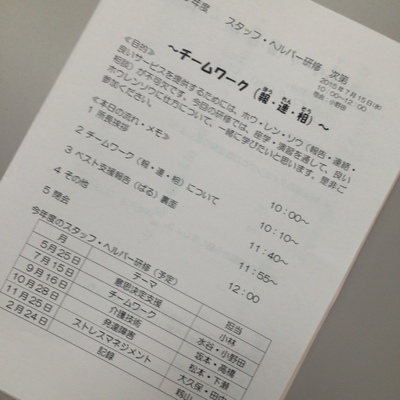 年度　スタッフ・ヘルパー研修　次第
2015年7月15日㈬
10：00～12：00
～チームワーク（報・連・相）～
≪目的≫
良いサービスを提供するためには、ホウ・レン・ソウ（報告・連絡・
相談）が不可欠です。今回の研修では、座学・演習を通して、良い
ホウレンソウに仕方について、一緒に学びたいと思います。是非ご
参加ください。
≪本日の流れ・メモ≫
1 所長挨拶　10：00～
2 チームワーク（報・連・相）について　10：10～
3 ベスト支援報告（ぱる）裏面　11：40～
4 その他　11：55～
5 閉会　12：00
今年度のスタッフ・ヘルパー研修（予定）
月　テーマ　担当
5月25日　意思決定支援　小林
7月15日　チームワーク　水谷・小野田
9月16日　介護技術　坂本・高橋
10月28日　発達障害　松本・下瀬
11月25日　ストレスマネジメント　大久保・田中
2月24日　記録